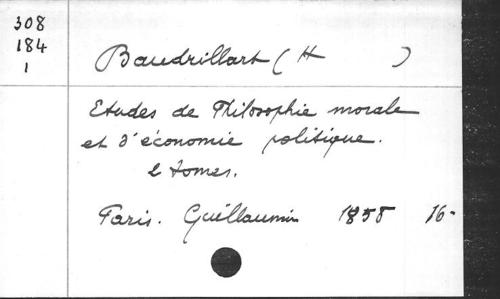 308
184
1
Baudrillart (H )
Etudes de Philosophie morale
et d'économie politique.
2 tomes.
Paris. Guillaumin 1858 16-